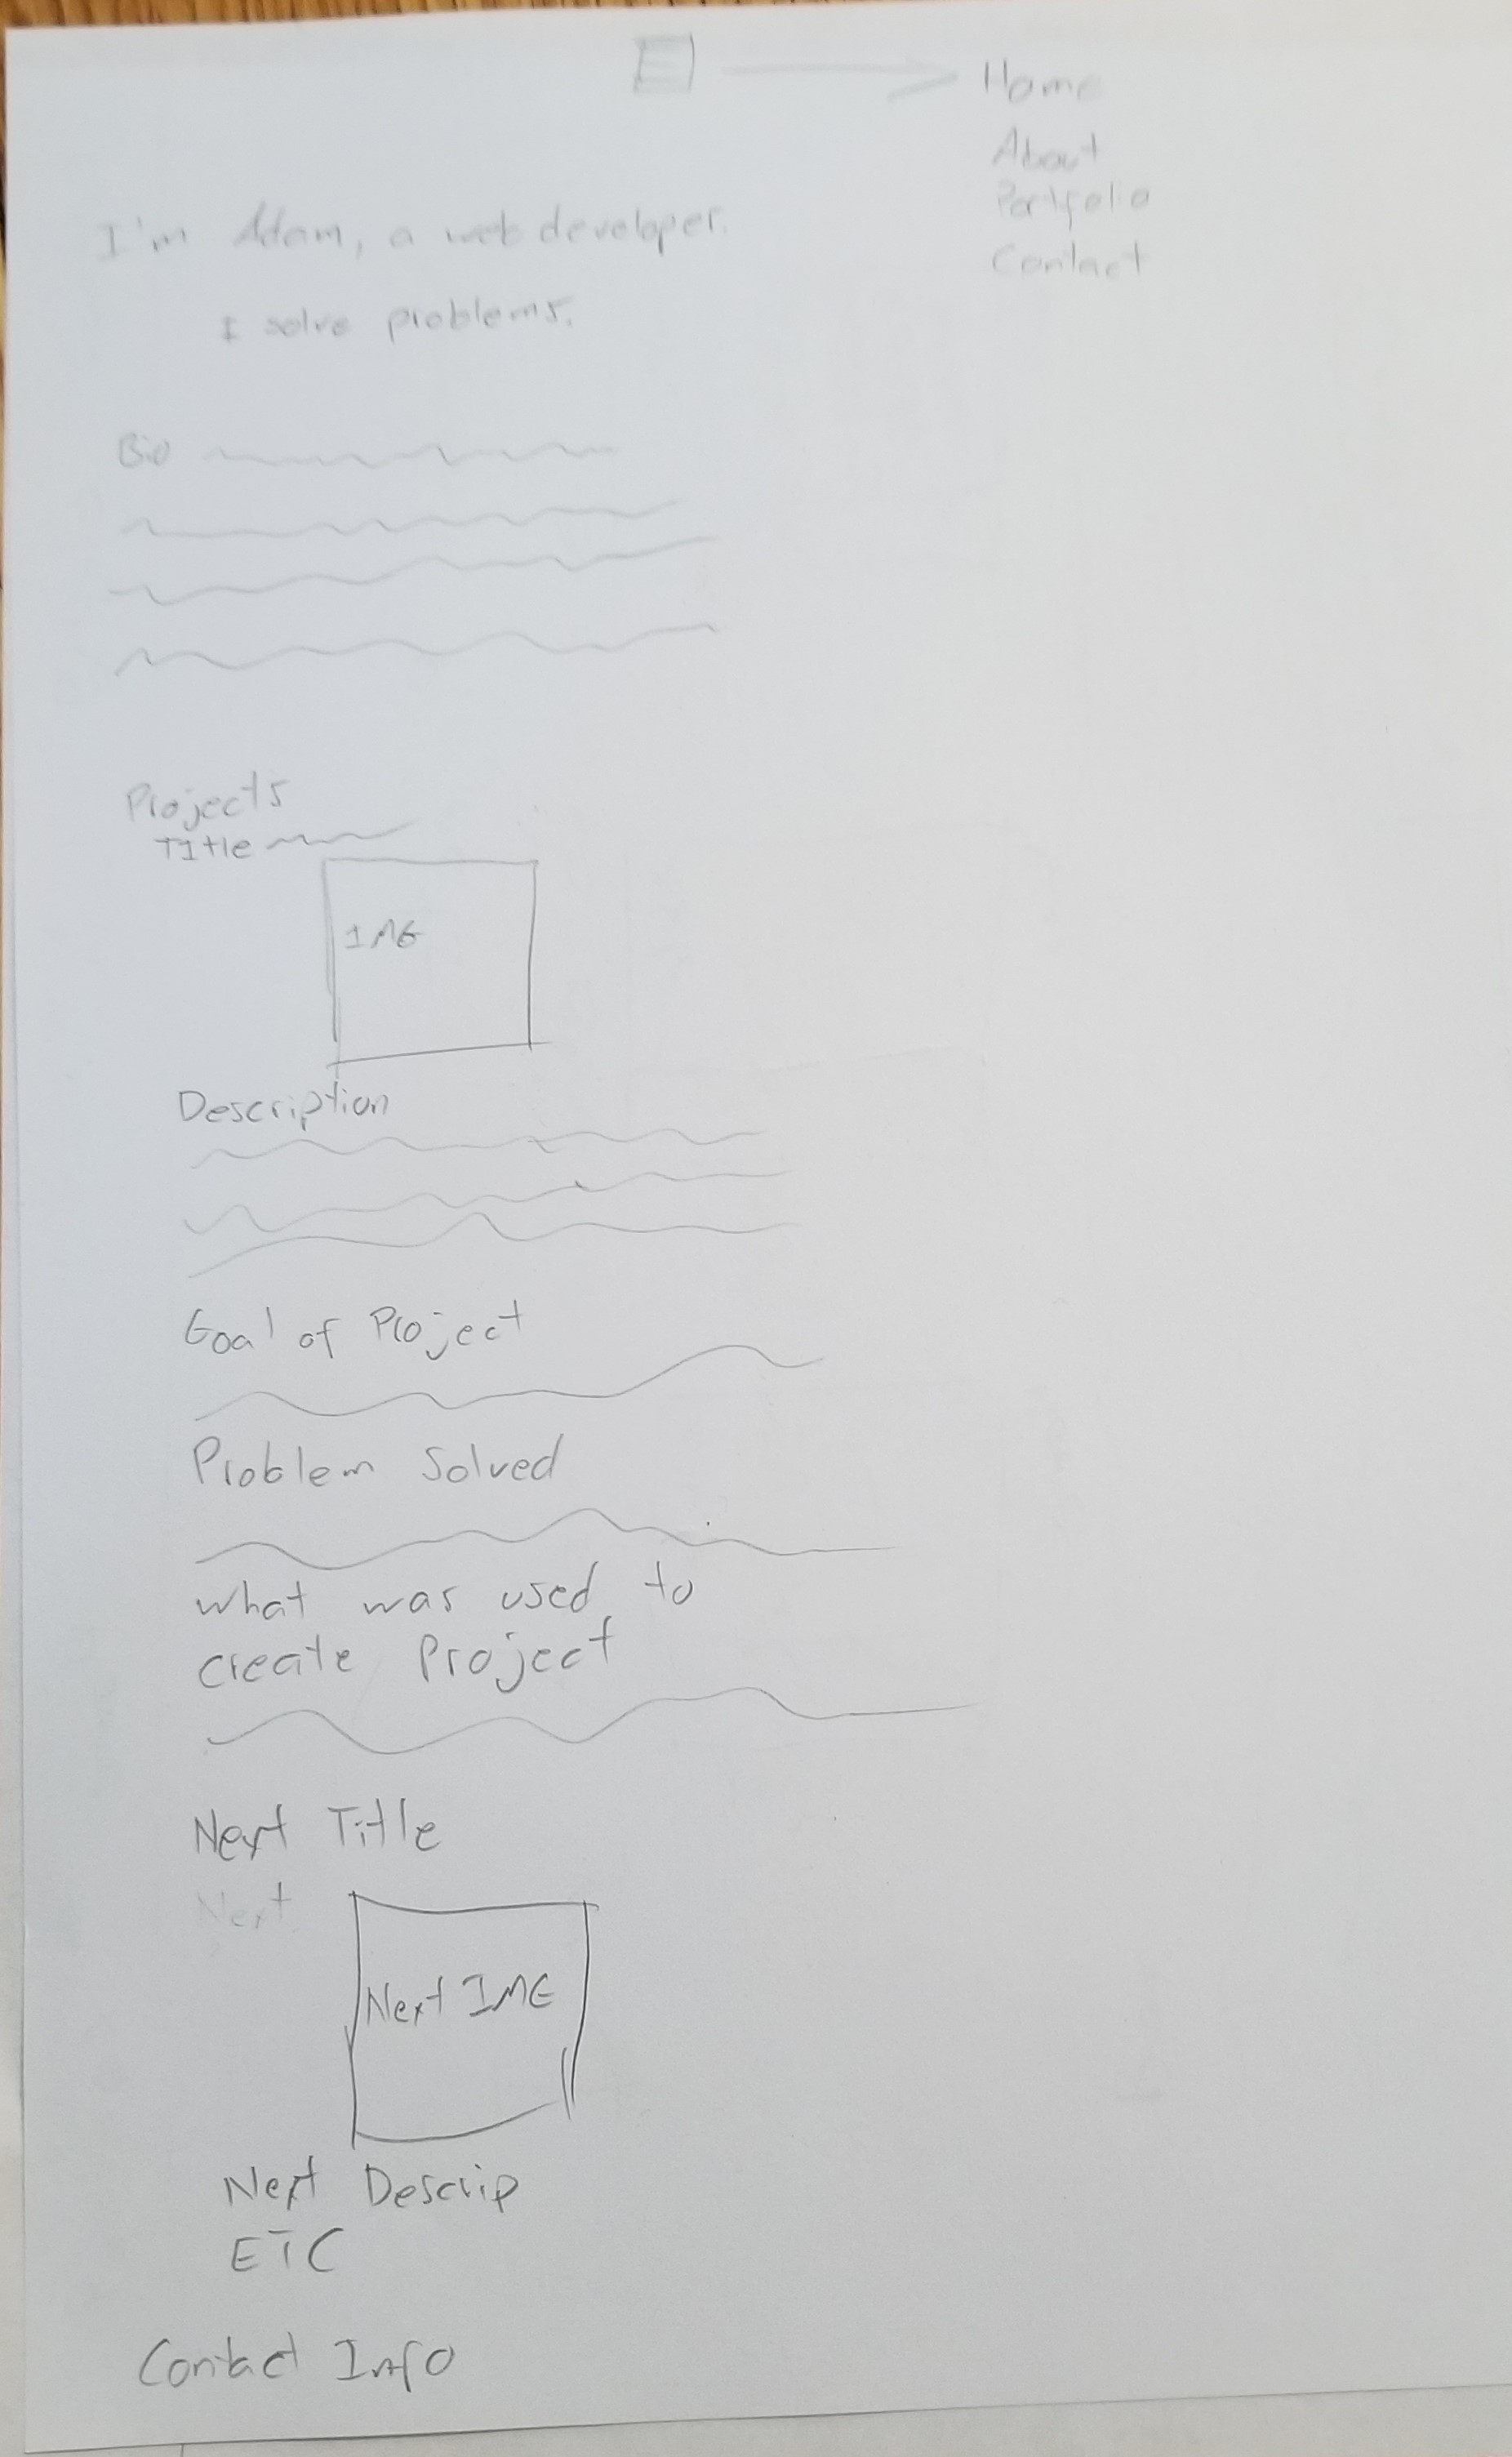 Home
About
Portfolio
Contact
I'm Adam, a web developer.
I solve problems.
Bio
Projects
TItle
IMG
Description
Goal of Project
Problem Solved
what was used to
create Project
Next Title
Next
Next IMG
Next Descrip
ETC
Contact Info